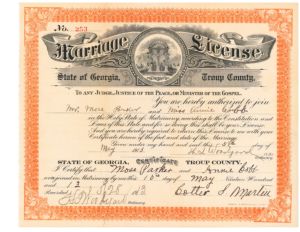 No. 253
Marriage License
State of Georgia, Troup County.
TO ANY JUDGE, JUSTICE OF THE PEACE, OR MINISTER OF THE GOSPEL.
You are hereby authorized to join
Mr. Mose Parker and Miss Annie Cobb
in the Holy State of Matrimony according to the Constitution and
Laws of this State and for so doing this shall be your License
And you are hereby required to return this License to me with your
Certificate hereon of the fact and date of the Marriage.
Given under my hand and seal this
May
STATE OF GEORGIA, Certificate TROUP COUNTY.
I Certify that Mose Parker and Annie Cobb
were joined in Matrimony by me this 10 day of May Nineteen Hundred
and